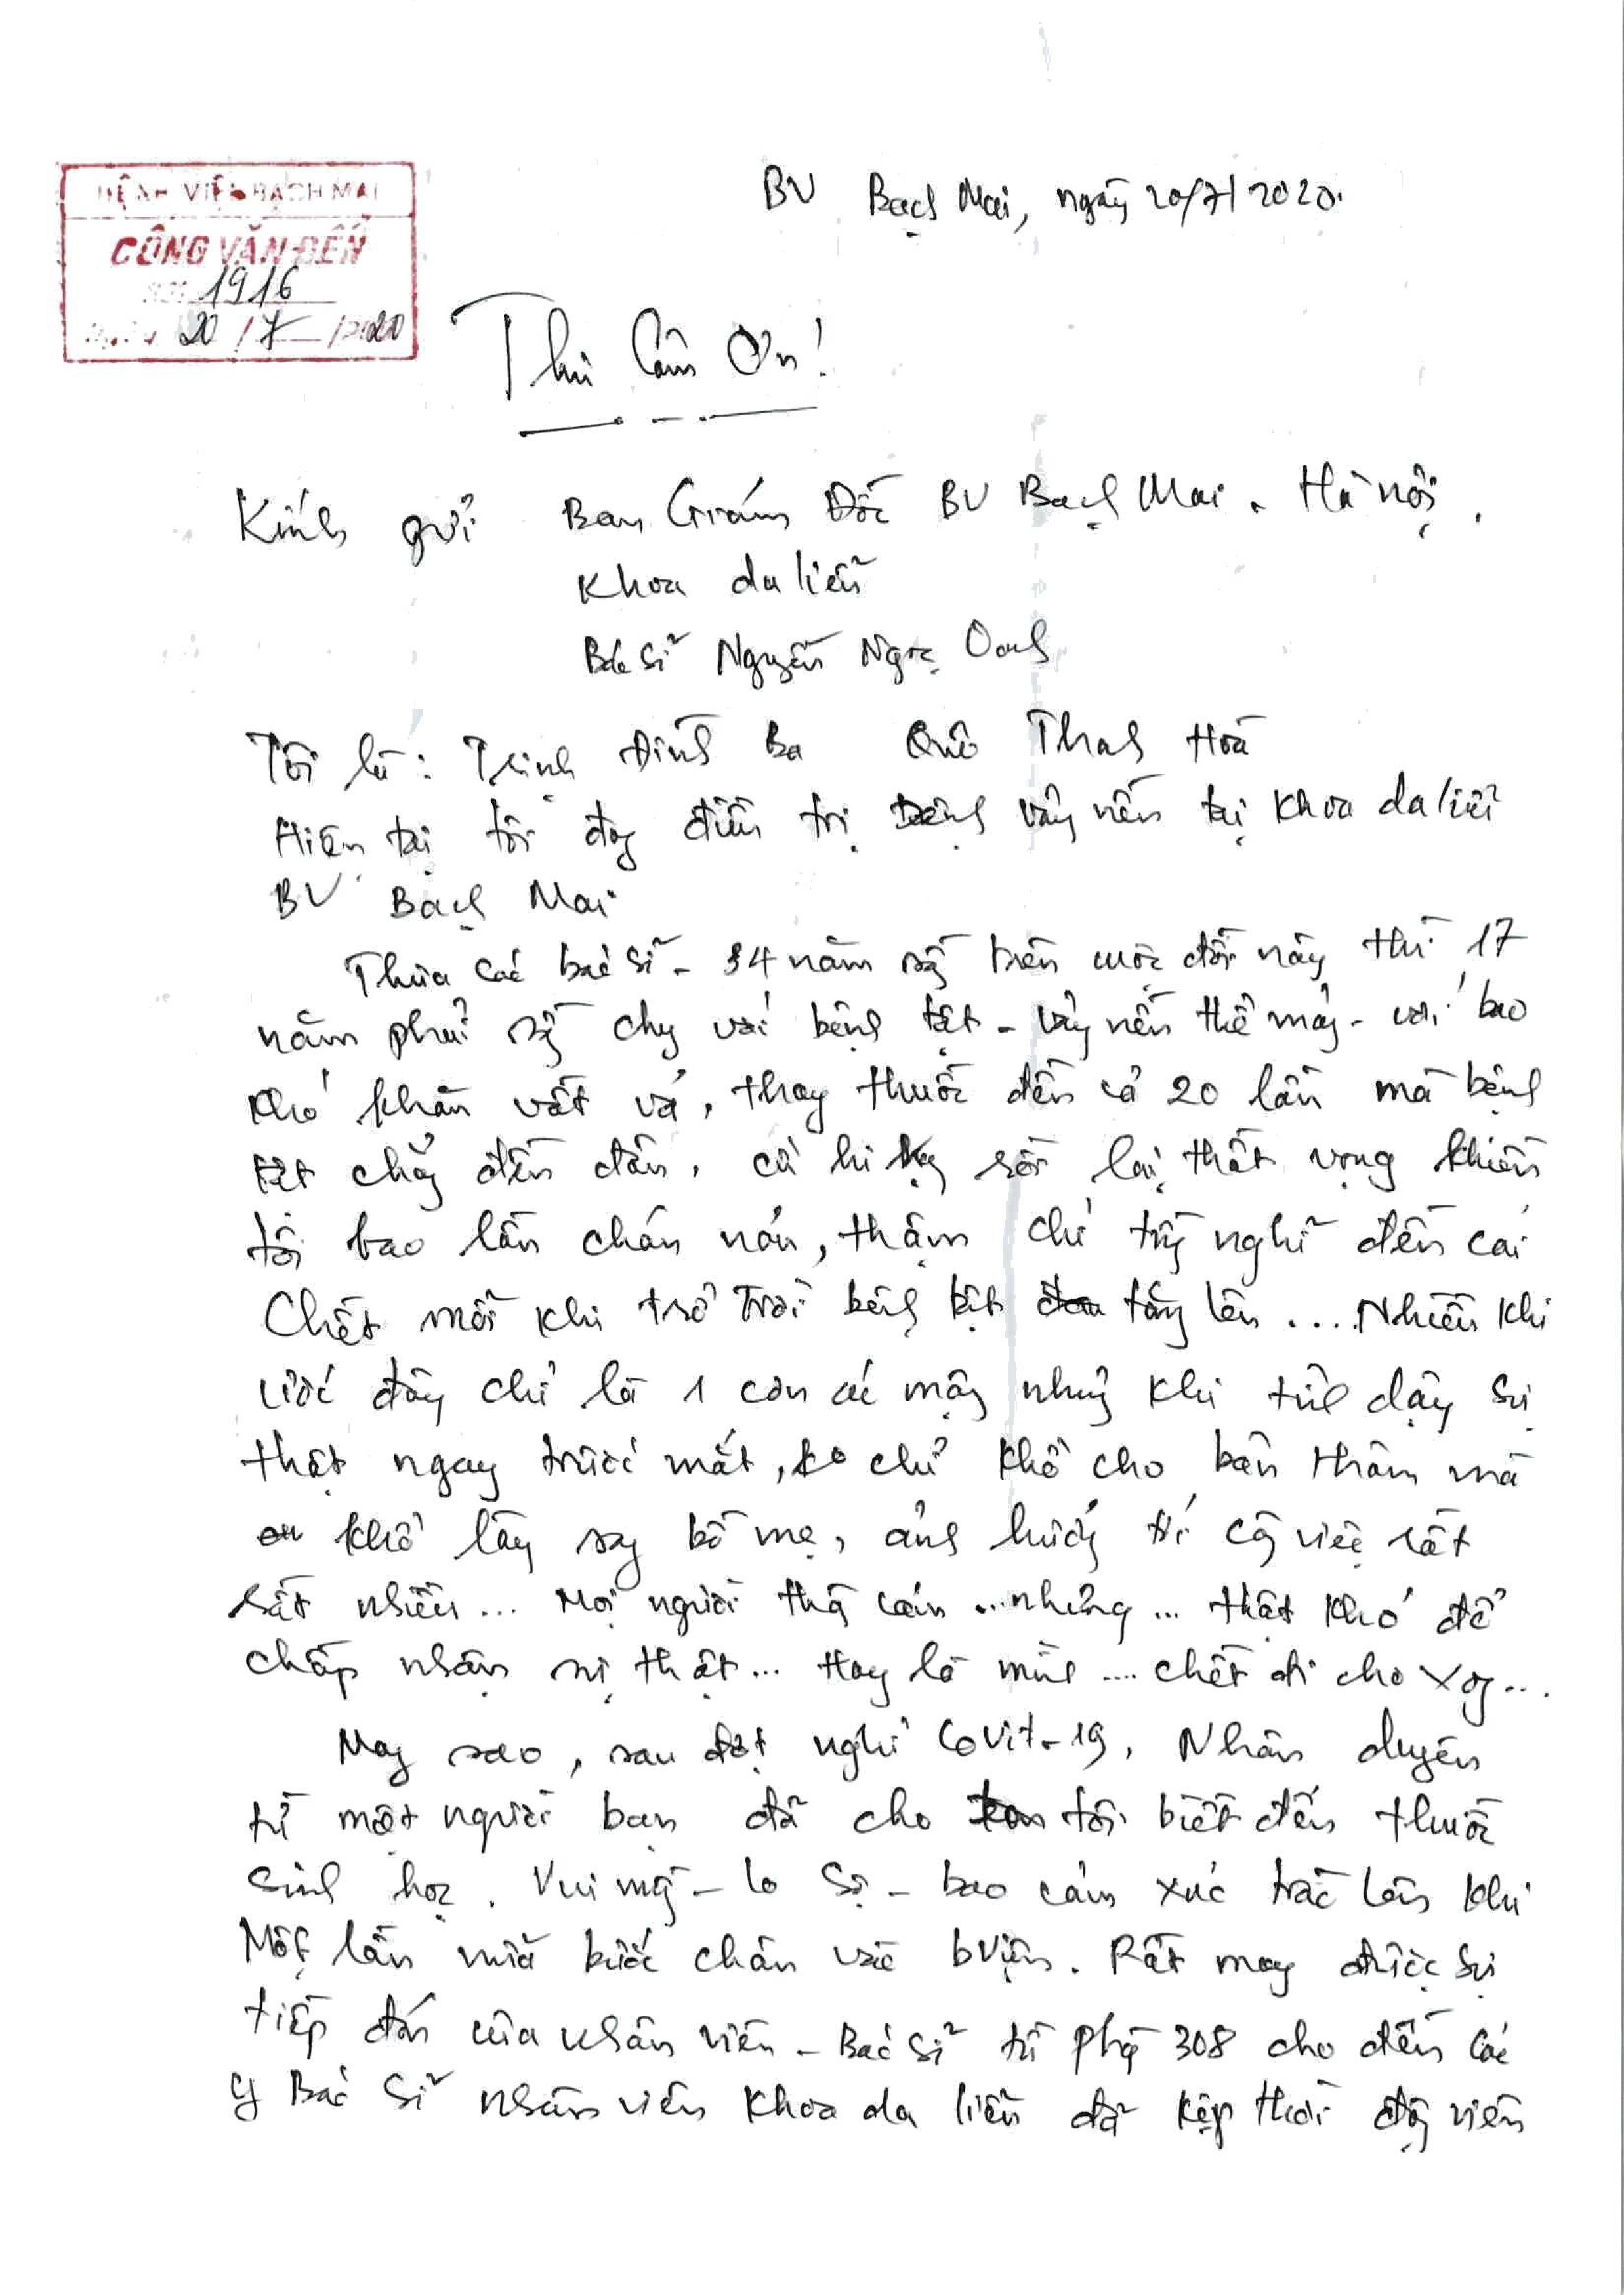 BỆNH VIỆN BẠCH MAI
CÔNG VĂN ĐẾN
Số: 1916
Ngày 20/7/2020
BV Bạch Mai, ngày 20/7/2020.
Thư Cảm Ơn!
Kính gửi Ban Giám Đốc BV Bạch Mai. Hà nội.
Khoa da liễu
Bác sĩ Nguyễn Ngọc Oanh
Tôi là: Trịnh Đình Ba Quê Thanh Hoá
Hiện tại tôi đang điều trị bệnh vảy nến tại khoa da liễu
BV Bạch Mai
Thưa các bác sĩ - 34 năm sống trên cuộc đời này thì 17
năm phải sống chung với bệnh tật - vảy nến thể mảng - với bao
khó khăn vất vả, thay thuốc đến cả 20 lần mà bệnh
tật chẳng đến đâu, cứ hi vọng rồi lại thất vọng khiến
tôi bao lần chán nản, thậm chí từng nghĩ đến cái
Chết mỗi khi trở trời bệnh tật tăng lên .... Nhiều khi
ước đây chỉ là 1 cơn ác mộng nhưng khi tỉnh dậy sự
thật ngay trước mắt, ko chỉ khổ cho bản thân mà
khổ lây sang bố mẹ, ảnh hưởng tới công việc rất
rất nhiều ... Mọi người thông cảm ... nhưng ... thật khó để
chấp nhận sự thật ... Hay là mình .... chết đi cho xong ...
May sao, sau đợt nghỉ Covit-19, Nhân duyên
từ một người bạn đã cho tôi biết đến thuốc
sinh học. Vui mừng - lo sợ - bao cảm xúc trào lên khi
Một lần nữa bước chân vào bviện. Rất may được sự
tiếp đón của nhân viên - Bác sĩ từ phòng 308 cho đến các
y Bác sĩ nhân viên khoa da liễu đã kịp thời động viên